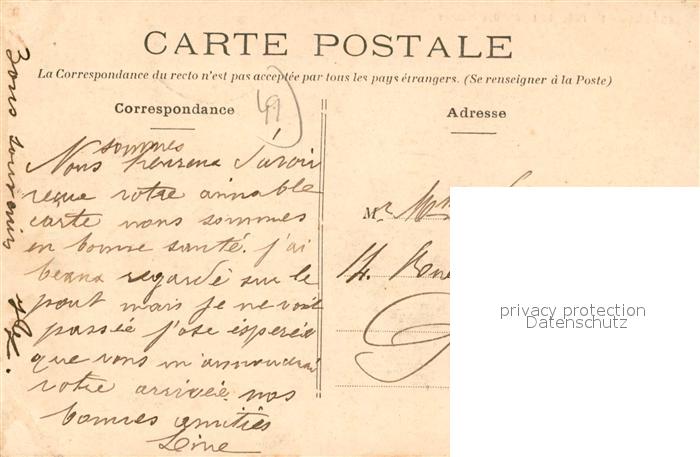 CARTE POSTALE
La Correspondance du recto n'est pas acceptée par tous les pays étrangers. (Se renseigner à la Poste)
Correspondance
49
Adresse
sommes
Nous heureux d'avoir
reçue votre aimable
carte nous sommes
en bonne santé. j'ai
beau regardé sur le
pont mais je ne voit
passée j'ose espérée
que vous m'annoncerai
votre arrivée nos
bonnes amitiés
Line
M
14. Rue
privacy protection
Datenschutz